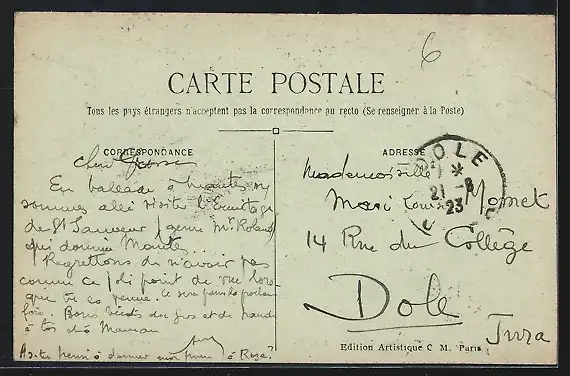 6
CARTE POSTALE
Tous les pays étrangers n'acceptent pas la correspondance au recto (Se renseigner à la Poste)
CORRESPONDANCE
ADRESSE
DOLE
21 -8
23
En balade à Mantes ns
sommes allé visite l'Ermitage
de St Sauveur
qui domine Mantes..
Regrettons de n'avoir pas
connu ce joli point de vue lors
que tu es venue. Ce sera pour la prochaine
fois. Bons baisers des gros et de
à toi à Maman
As-tu pensé à donner mon à Rose?
Mademoiselle
Marie Louise Monet
14 Rue du Collège
Dole
Jura
Edition Artistique C M. Paris